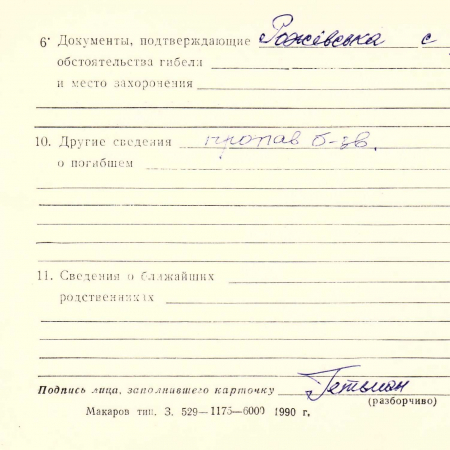 6. Документы, подтверждающие Рожівська с
обстоятельства гибели
и место захоронения
10. Другие сведения пропав б-зв.
о погибшем
11. Сведения о ближайших
родственниках
Подпись лица, заполнившего карточку Гетьман
(разборчиво)
Макаров тип. З. 529—1175—6000 1990 г,